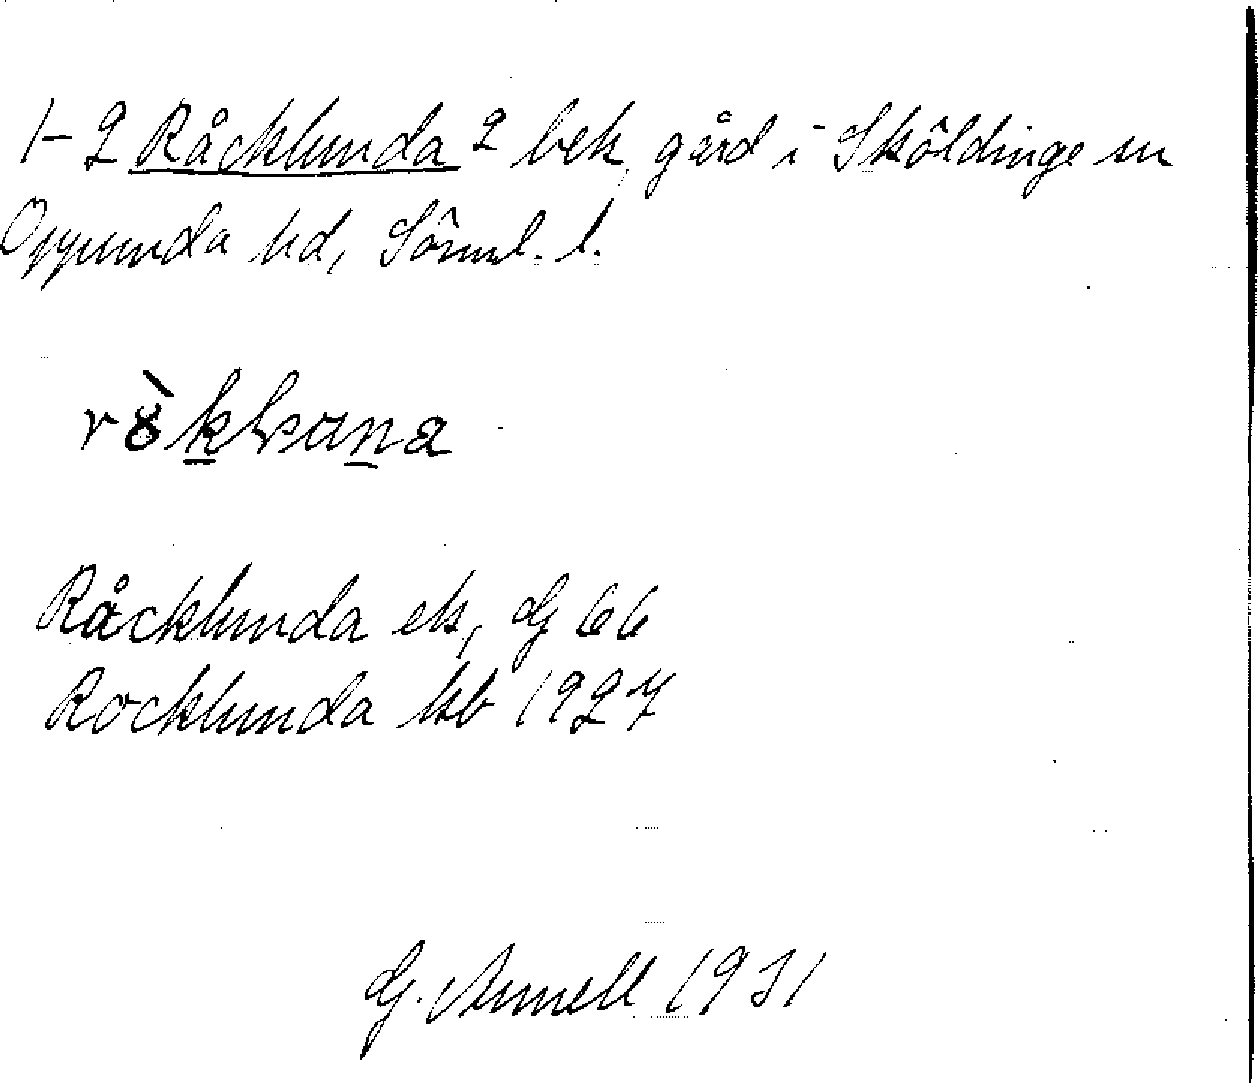 1-2 Råcklunda 2 bek. gård i Sköldinge sn
Oppunda hd, Söml. l.
Råcklunda ek, G 66
Rocklunda kb 1927
G. Annell 1931